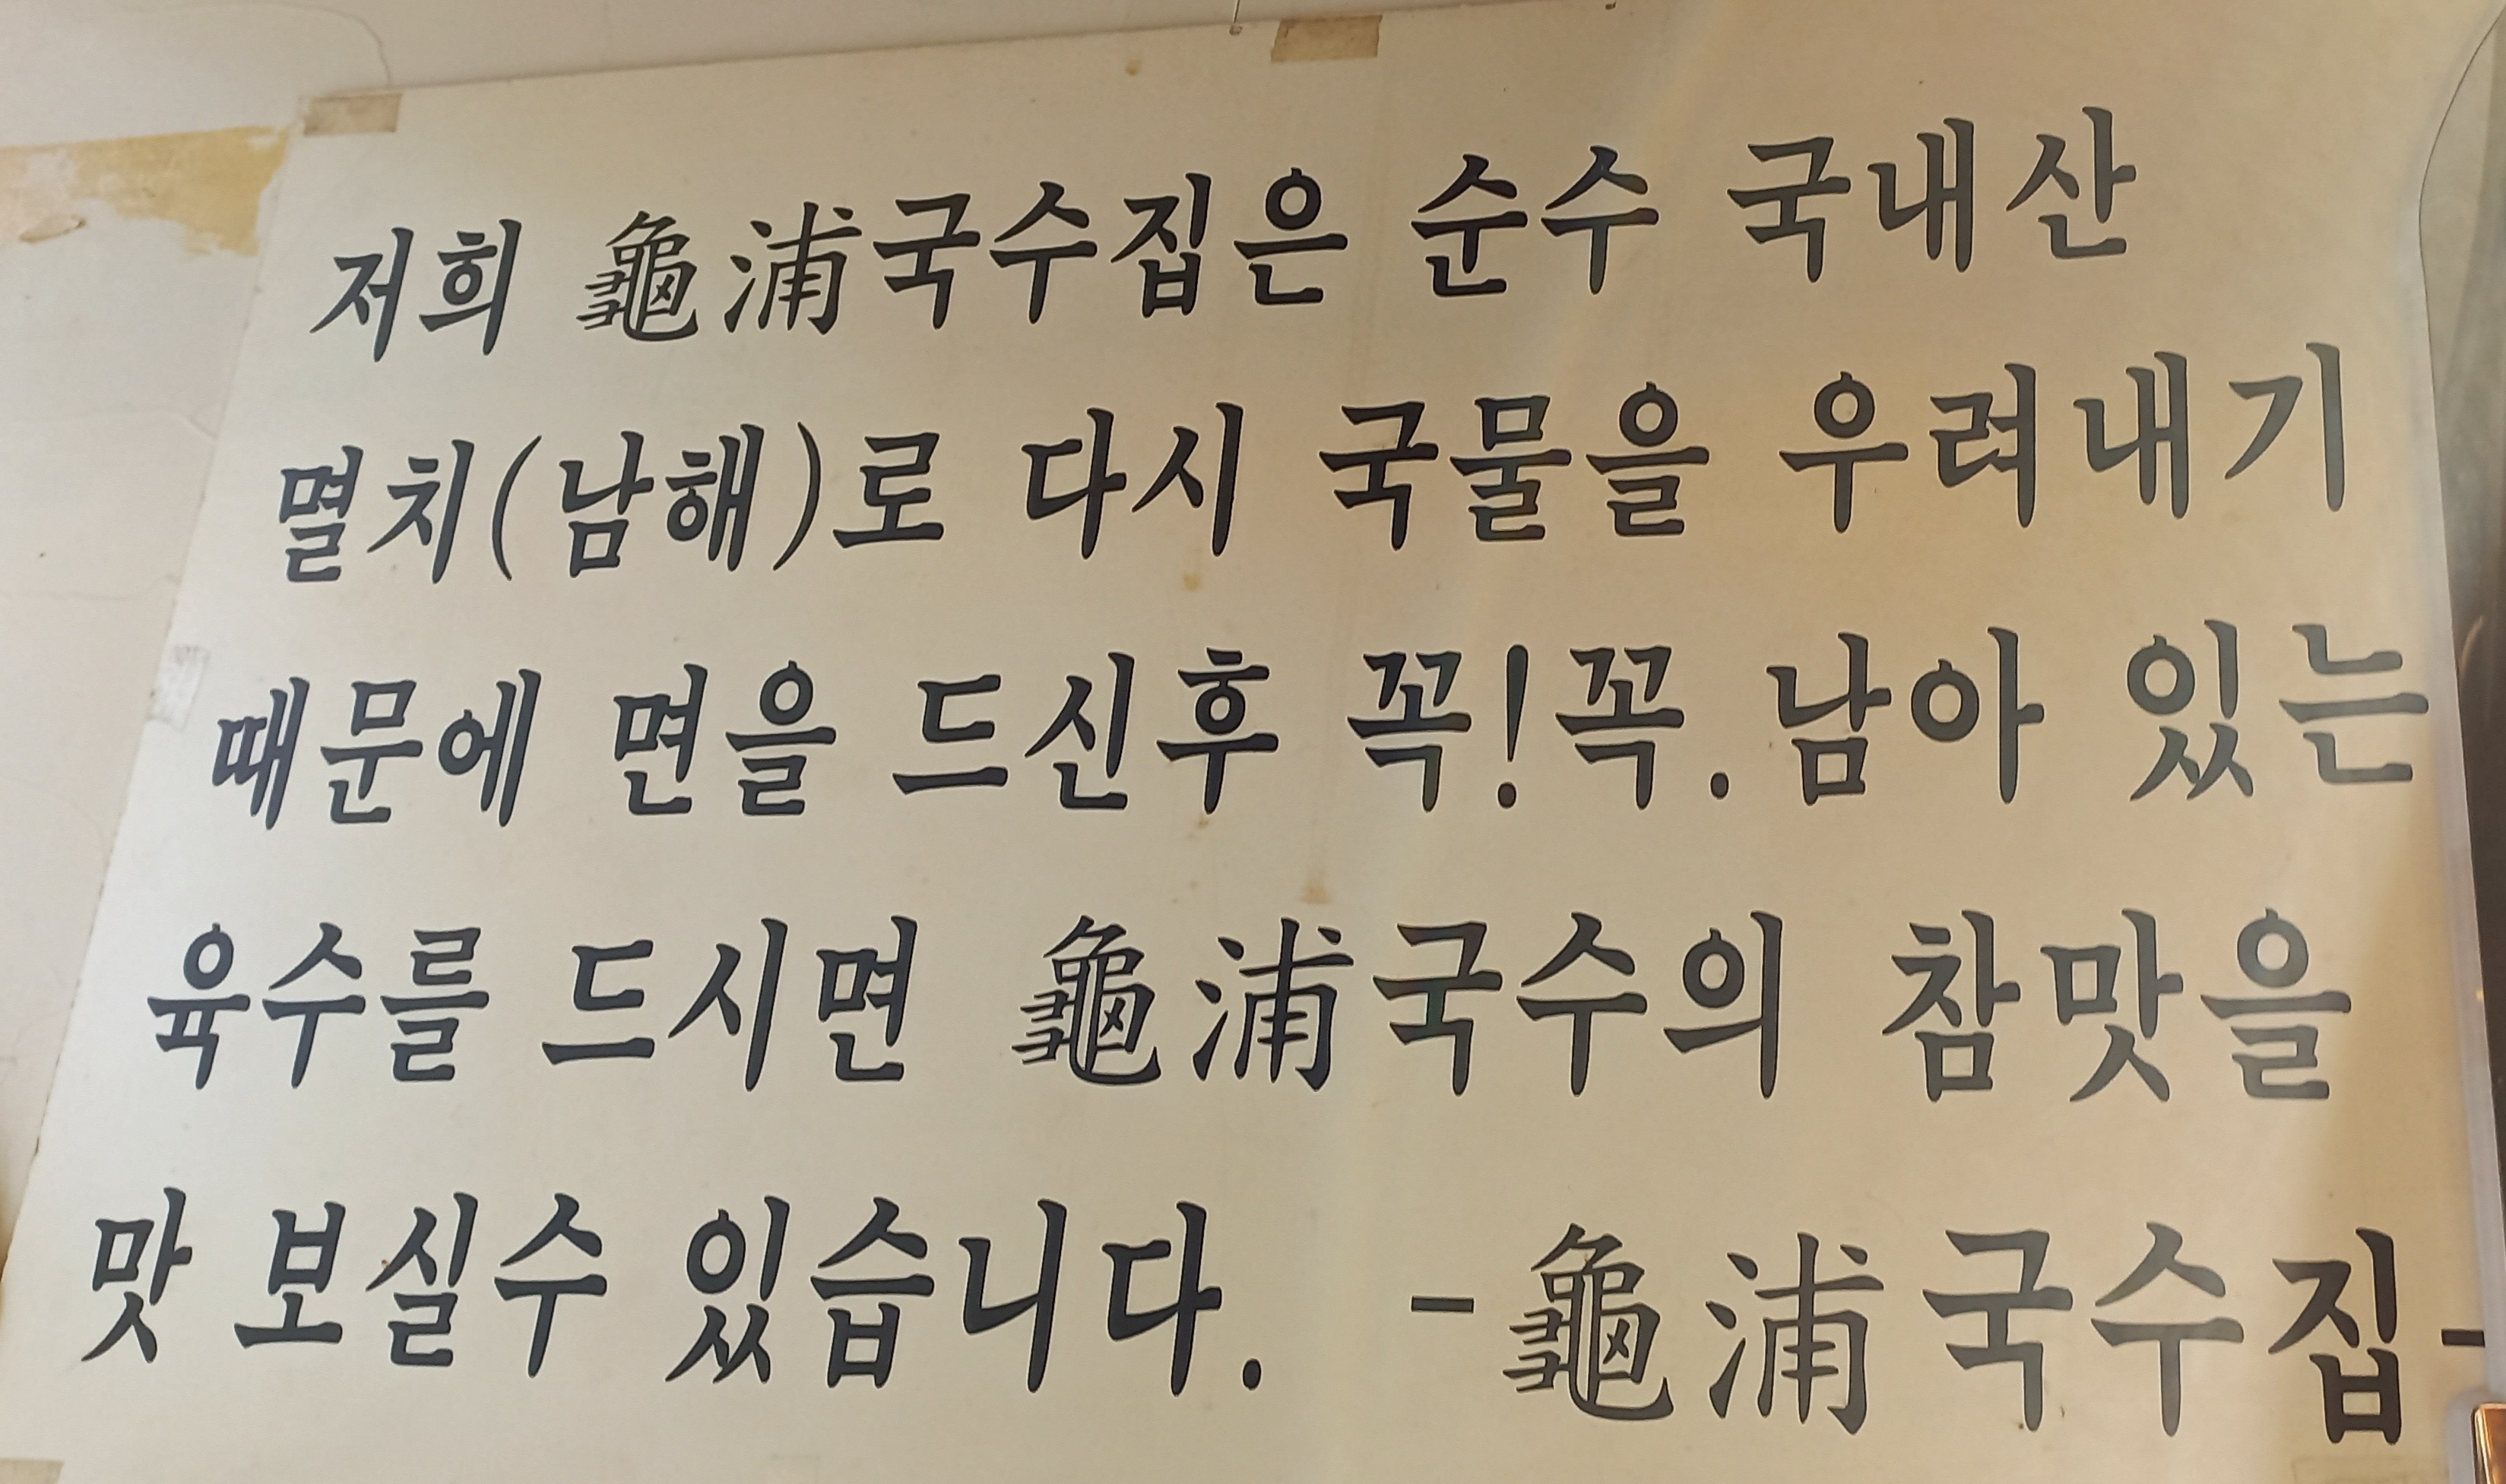 저희 龜浦국수집은 순수 국내산
멸치(남해)로 다시 국물을 우려내기
때문에 면을 드신후 꼭!꼭.남아 있는
육수를 드시면 龜浦국수의 참맛을
맛 보실수 있습니다. -龜浦국수집-